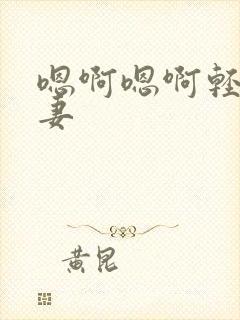 嗯啊嗯啊轻
妻
黄昆